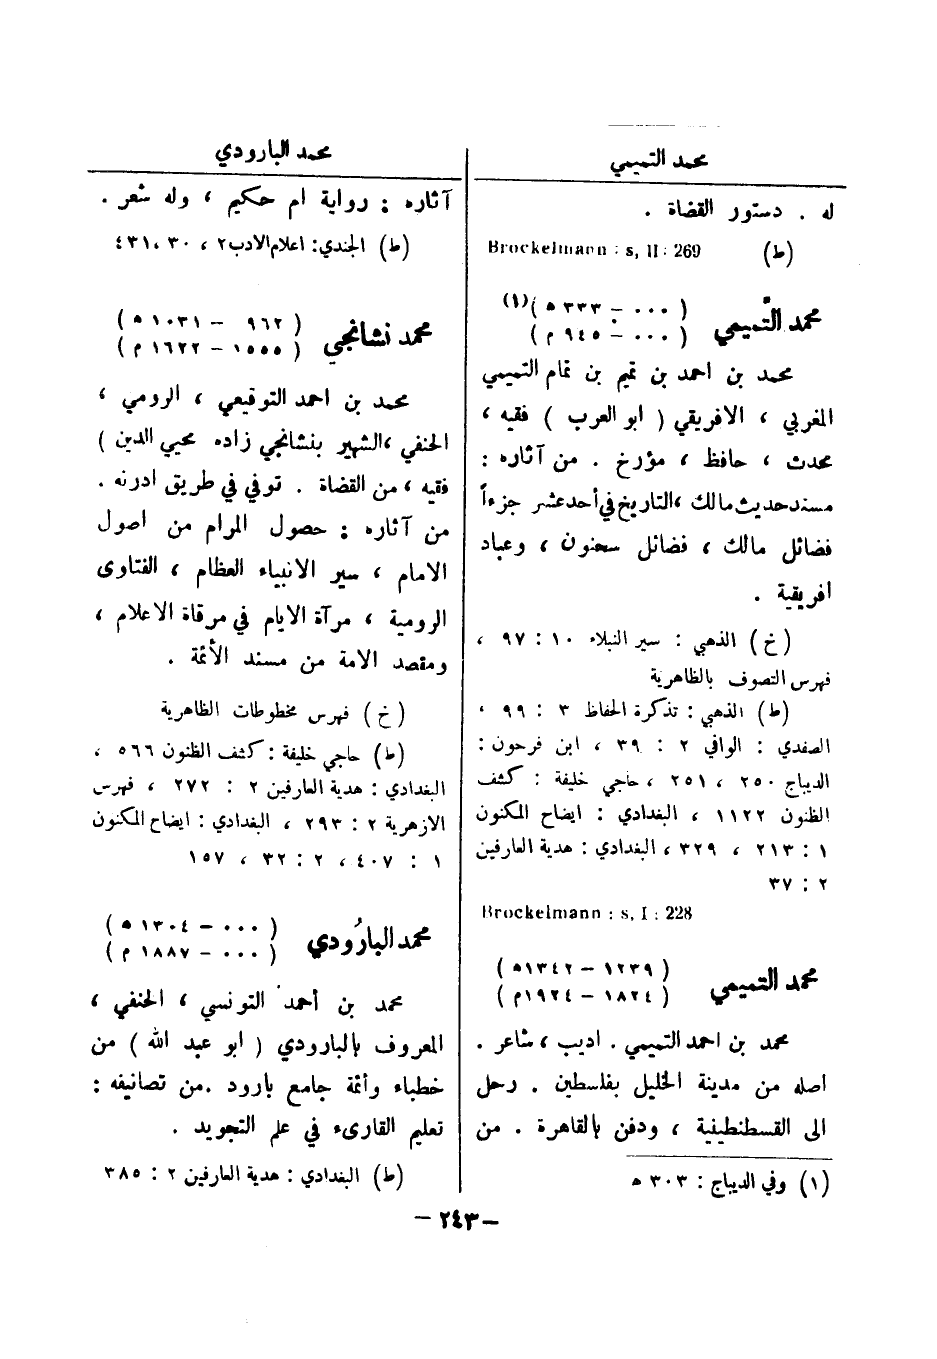 محمد التميمي
له . دستور القضاة .
(ط) Brockelmann : s, II : 269
محمد التَّميمي (٠٠٠ - ٣٣٣ ه)(١)
(٠٠٠ - ٩٤٥ م)
محمد بن احمد بن تميم بن تمام التميمي
المغربي ، الافريقي ( ابو العرب ) فقيه ،
محدث ، حافظ ، مؤرخ . من آثاره :
مسند حديث مالك ، التاريخ في أحد عشر جزءاً
فضائل مالك ، فضائل سحنون ، وعباد
افريقية .
(خ) الذهبي : سير النبلاء ١٠ : ٩٧ ،
فهرس التصوف بالظاهرية
(ط) الذهبي : تذكرة الحفاظ ٣ : ٩٩ ،
الصفدي : الوافي ٢ : ٣٩ ، ابن فرحون :
الديباج ٢٥٠ ، ٢٥١ ، حاجي خليفة : كشف
الظنون ١١٢٢ ، البغدادي : ايضاح المكنون
١ : ٢١٣ ، ٣٢٩ ، البغدادي : هدية العارفين
٢ : ٣٧
Brockelmann : s, I : 228
محمد التميمي (١٢٣٩ - ١٣٤٢ه)
(١٨٢٤ - ١٩٢٤م)
محمد بن احمد التميمي . اديب ، شاعر .
اصله من مدينة الخليل بفلسطين . رحل
الى القسطنطينية ، ودفن بالقاهرة . من
(١) وفي الديباج : ٣٠٣ ه
محمد البارودي
آثاره : رواية ام حكيم ، وله شعر .
(ط) الجندي : اعلام الادب ٢ ، ٣٠ ، ٤٣١
محمد نشانجي (٩٦٢ - ١٠٣١ ه)
(١٥٥٥ - ١٦٢٢ م)
محمد بن احمد التوقيعي ، الرومي ،
الحنفي ، الشهير بنشانجي زاده محيي الدين )
فقيه ، من القضاة . توفي في طريق ادرنه .
من آثاره : حصول المرام من اصول
الامام ، سير الانبياء العظام ، الفتاوى
الرومية ، مرآة الايام في مرقاة الاعلام ،
ومقصد الامة من مسند الأئمة .
(خ) فهرس مخطوطات الظاهرية
(ط) حاجي خليفة : كشف الظنون ٥٦٦ ،
البغدادي : هدية العارفين ٢ : ٢٧٢ ، فهرس
الازهرية ٢ : ٢٩٣ ، البغدادي : ايضاح المكنون
١ : ٤٠٧ ، ٢ : ٣٢ ، ١٥٧
محمد البارُودي (٠٠٠ - ١٣٠٤ ه)
(٠٠٠ - ١٨٨٧ م)
محمد بن أحمد التونسي ، الحنفي ،
المعروف بالبارودي ( ابو عبد الله ) من
خطباء وأئمة جامع بارود . من تصانيفه :
تعليم القارىء في علم التجويد .
(ط) البغدادي : هدية العارفين ٢ : ٣٨٥
- ٢٤٣ -